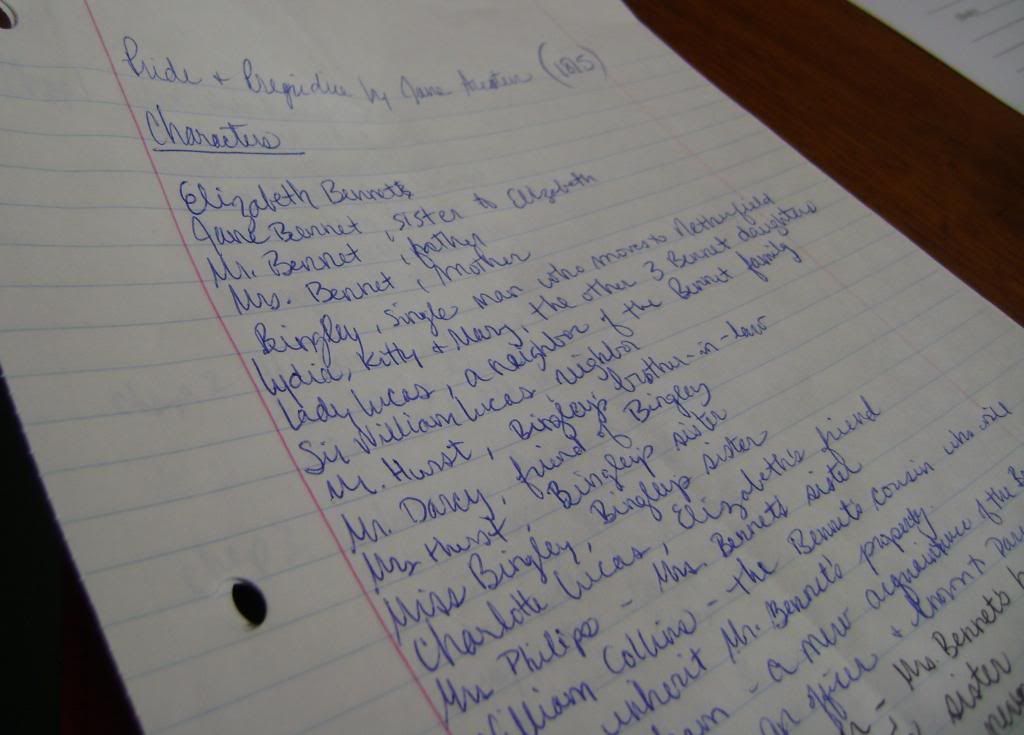 Pride + Prejudice by Jane Austen
Characters
Elizabeth Bennet
Jane Bennet, sister to Elizabeth
Mr. Bennet, father
Mrs. Bennet, mother
Bingley, single man who moves to Netherfield
Lydia, Kitty + Mary, the other 3 Bennet daughters
Lady Lucas, a neighbor of the Bennet family
Sir William Lucas neighbor
Mr. Hurst, Bingley's brother-in-law
Mr. Darcy, friend of Bingley
Mrs Hurst, Bingley's sister
Miss Bingley, Bingley's sister
Charlotte Lucas, Elizabeth's friend
Mrs Philips - Mrs. Bennet's sister
William Collins - the Bennets cousin who will
inherit Mr. Bennet's property.
- a new acquaintance of the
officer +
- Mrs. Bennet's
sister